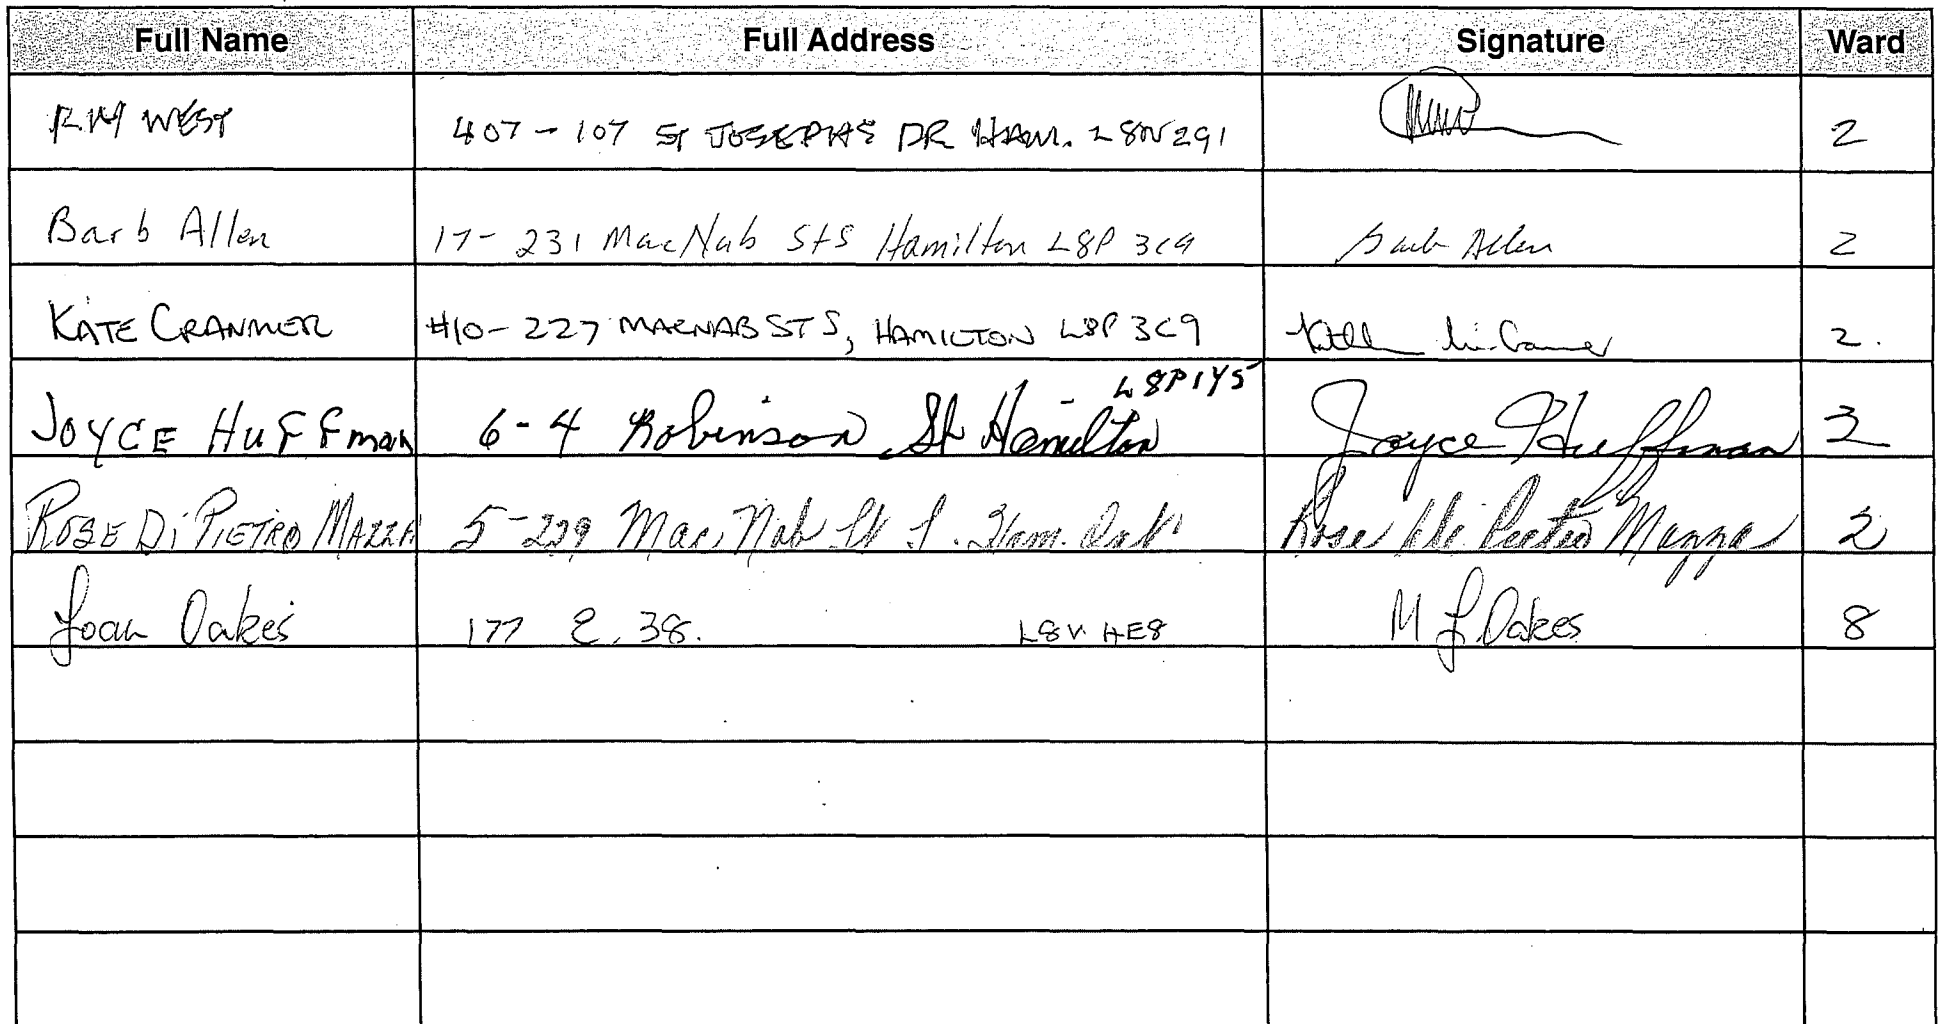 Full Name Full Address Signature Ward
R.M WEST 407 - 107 ST JOSEPHS DR HAM. L8N 2G1 2
Barb Allen 17 - 231 MacNab St S Hamilton L8P 3C9 Barb Allen 2
KATE CRANMER #10 - 227 MACNAB ST S, HAMILTON L8P 3C9 2.
L8P 1Y5
JOYCE HUFFman 6 - 4 Robinson St Hamilton Joyce Huffman 2
ROSE Di PIETRO MAZZA 5 - 229 Mac Nab St S. Ham. Ont. Rose Di Pietro Mazza 2
Joan Oakes 177 E. 38. L8V 4E8 M J Oakes 8